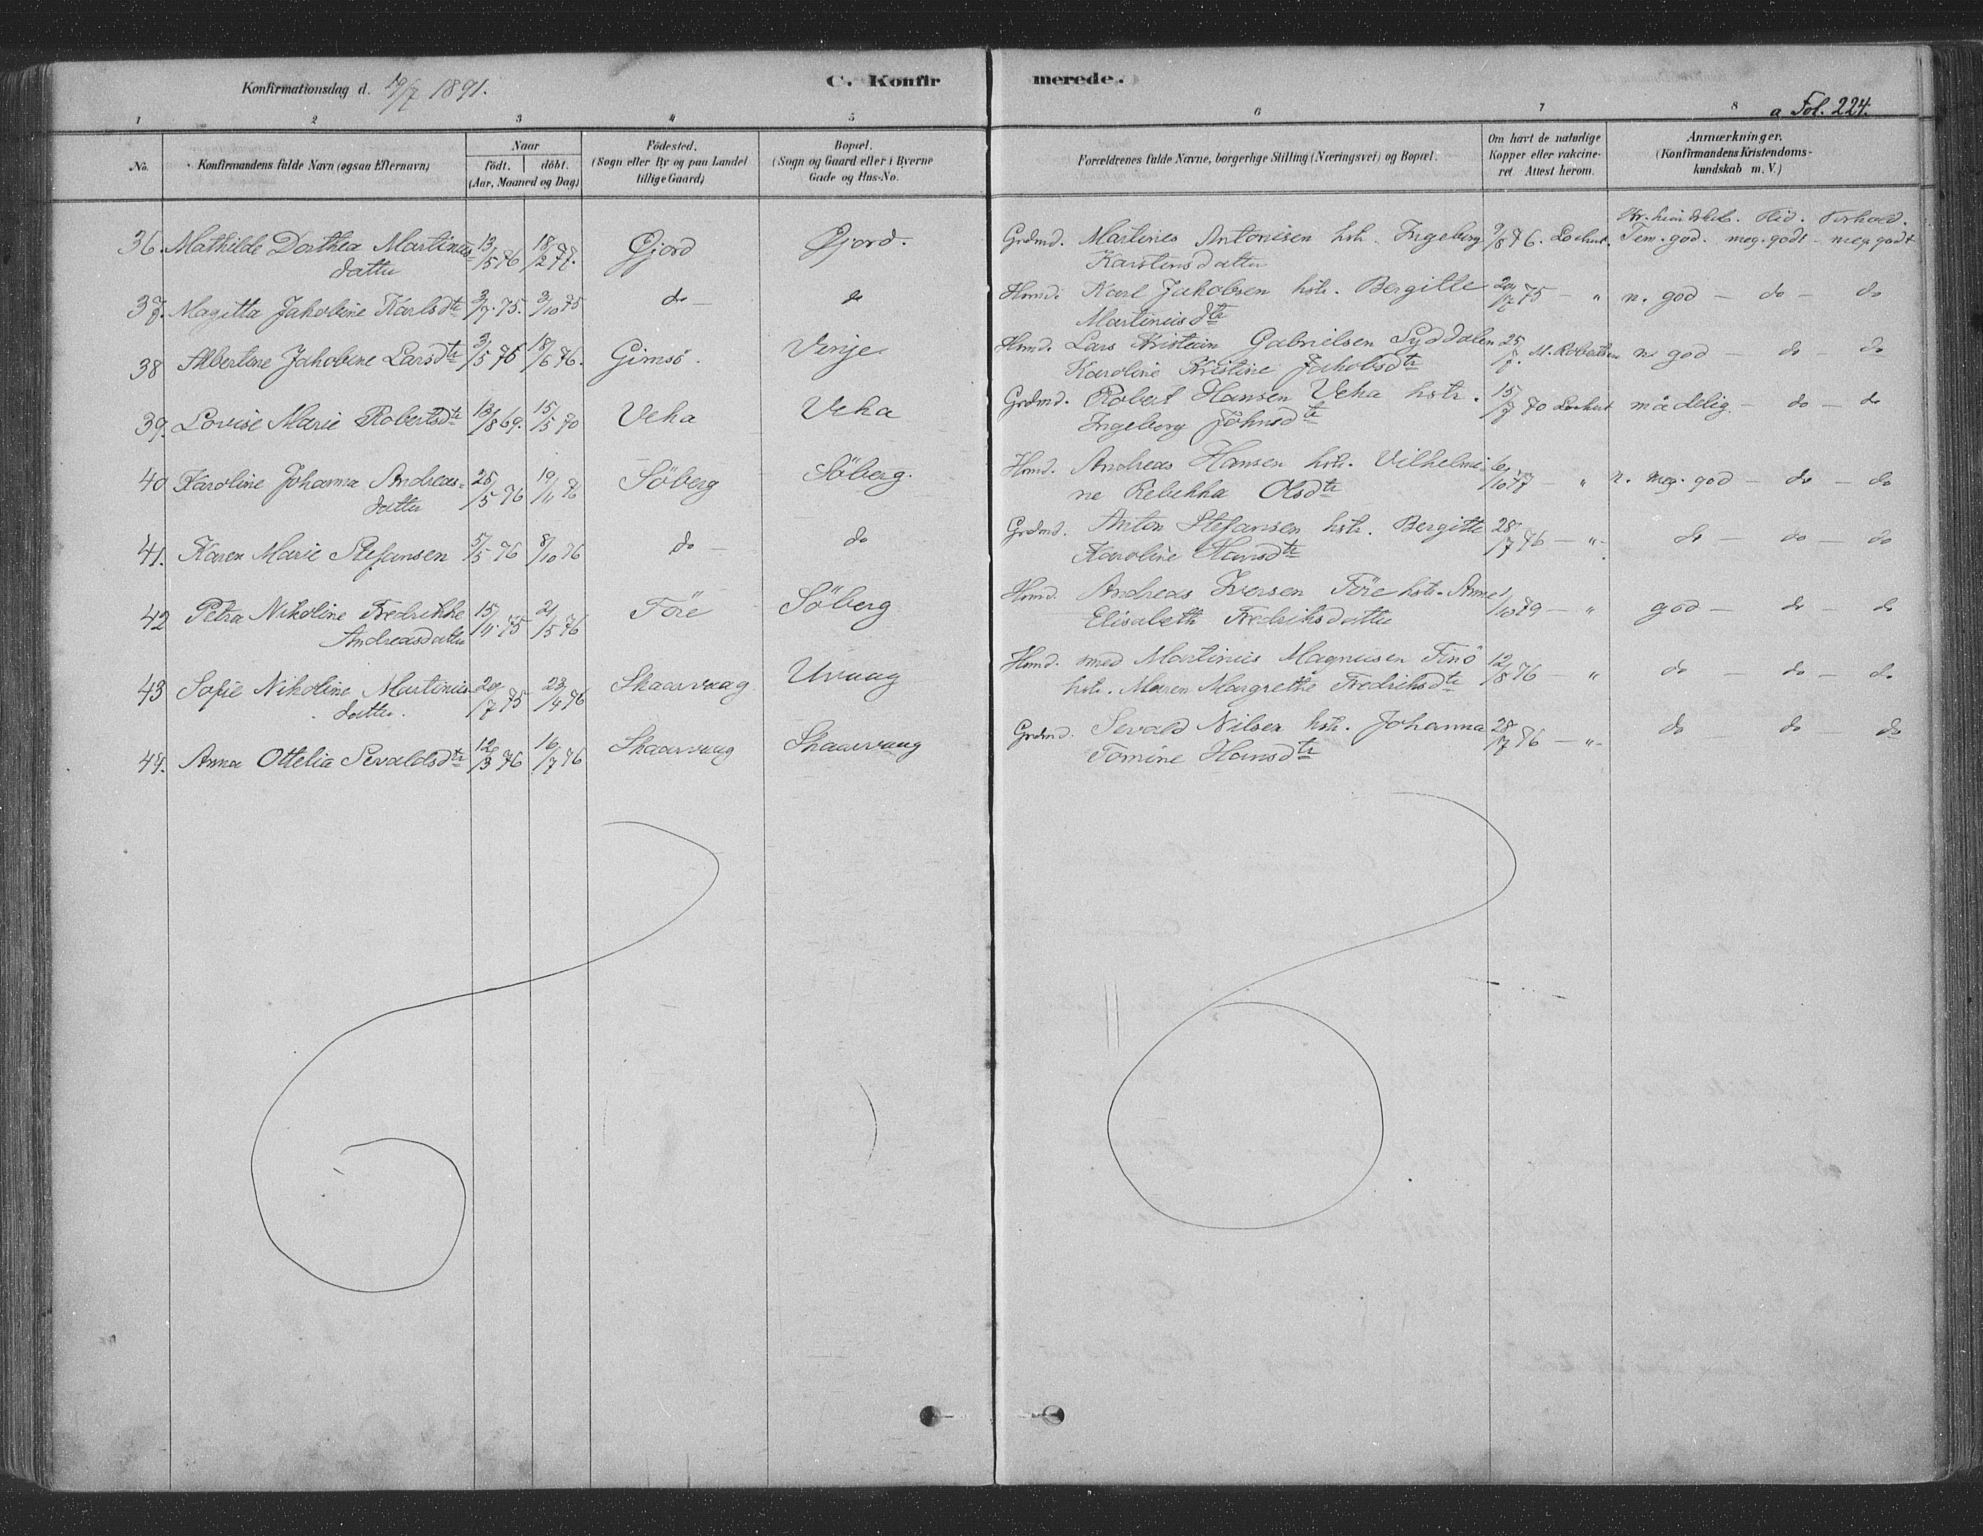 Konfirmationsdag d. 19/7 1891.
C. Konfirmerede.
a Fol. 224.
1 2 3 4 5 6 7 8
No. Konfirmandens fulde Navn (ogsaa Efternavn) Naar födt. döbt. (Aar, Maaned og Dag) Födested. (Sogn eller By og paa Landet tillige Gaard) Bopæl. (Sogn og Gaard eller i Byerne Gade og Hus-No. Forældrenes fulde Navne, borgerlige Stilling (Næringsvei) og Bopæl. Om havt de naturlige Kopper eller vakcineret Attest herom. Anmærkninger. (Konfirmandens Kristendomskundskab m. V.)
Kr. kundskab. Flid. Forhold.
36 Mathilde Dorthea Martinus- 13/5 76 18/2 77. Gjord Gjord. Grdmd. Martines Antonisen hstr. Ingeberg 9/8 76. Lochert Tem. god. meg. godt - meg. godt
datter Karstensdatter
37. Magitta Jakobine Karlsdtr 3/7. 75. 3/10 75 do - do Hmd. Karl Jakobsen hstr. Bergitte 29/7 75 - " n. god - do - do
Martinusdtr
38 Albertine Jakobine Larsdtr 3/5 76 18/6 76. Gimsö. Vinje Hmd. Lars Kristian Gabrielsen Syddalen 25/7. M. Robertsen n. god - do - do
Karoline Kristine Jakobsdtr
39. Lovise Marie Robertsdtr 13/8 69. 15/5 70 Veha Veha Grdmd. Robert Hansen Veha hstr. 15/7 70 Lochert mådelig. do - do
Ingeborg Johnsdtr
40 Karoline Johanna Andreas- 25/5 76 19/11 76 Söberg Söberg. Hmd. Andreas Hansen hstr. Vilhelmi- 6/10 77 - " n. meg. god - do - do
datter ne Rebekka Olsdtr
41. Karen Marie Stefansen 5/5 76 8/10 76 do - do Grdmd. Anton Stefansen hstr. Bergitte 28/7 76 - " - do - do - do
Karoline Hansdtr
42 Petra Nikoline Fredrikke 15/11. 75 21/5 76 Före Söberg Hmd. Andreas Iversen Före hstr. Anne 1/10 79 - " god - do - do
Andreasdatter Elisabeth Fredriksdatter
43 Sofie Nikoline Martinus- 29/7 75 23/4 76 Skaarvaag Uvaag Hmd. med Martinus Magnusen Finö 12/8 76 - " do - do - do
datter. hstr. Maren Margrethe Fredriksdtr
44. Anna Ottelia Sevaldsdtr 12/3 76 16/7 76 Skaarvaag Skaarvaag Grdmd. Sevald Nilsen hstr. Johanna 28/7 76 - " - do do - do
Tomine Hansdtr